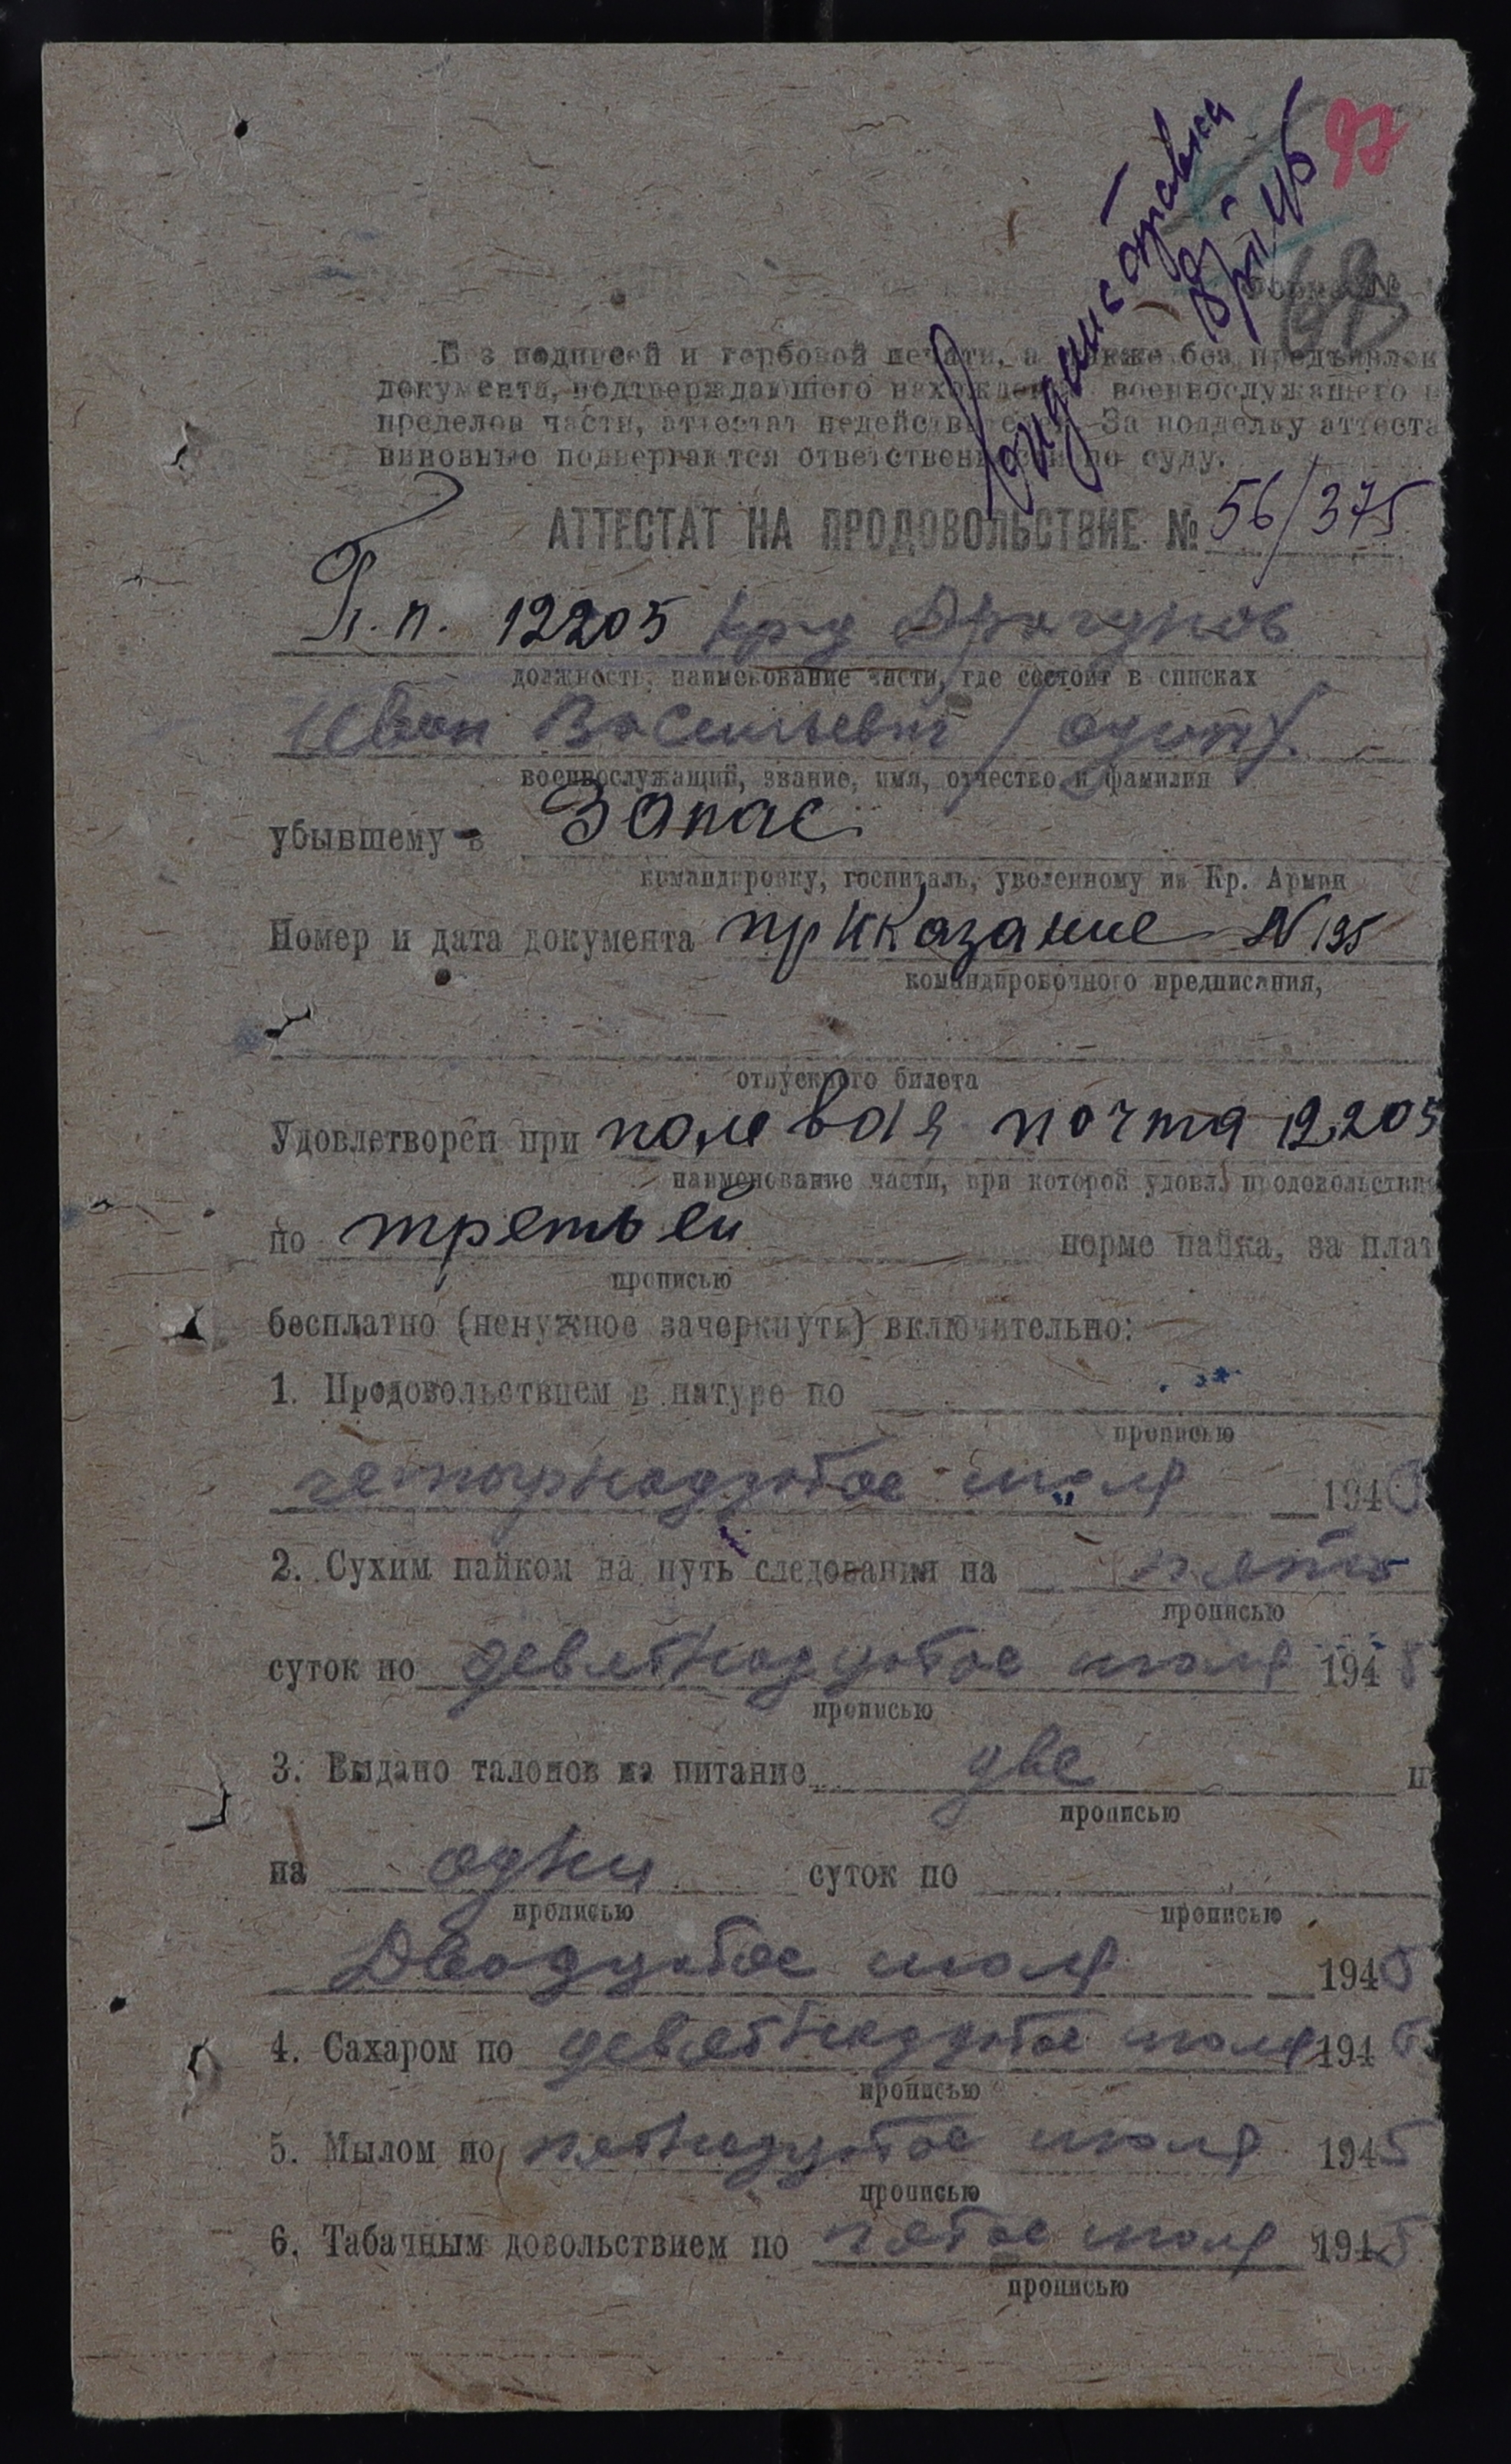 97
68
Форма №
Без подписей и гербовой печати, а также без предъявлен
документа, подтверждающего нахождение военнослужащего в
пределов части, аттестат недействителен. За подделку аттеста
виновные подвергаются ответственности по суду.
АТТЕСТАТ НА ПРОДОВОЛЬСТВИЕ № 56/375
П.п. 12205 кр-ц Драгунов
должность, наименование части, где состоит в списках
Иван Васильевич / одному.
военнослужащий, звание, имя, отчество и фамилия
убывшему в Запас
командировку, госпиталь, уволенному из Кр. Армии
Номер и дата документа приказание N 195
командировочного предписания,
отпускного билета
Удовлетворен при полевая почта 12205
наименование части, при которой удовл. продовольстви
по третьей норме пайка, за плат
прописью
бесплатно (ненужное зачеркнуть) включительно:
1. Продовольствием в натуре по
прописью
четырнадцатое июля 1945
2. Сухим пайком на путь следования на пять
прописью
суток по девятнадцатое июля 1945
прописью
3. Выдано талонов на питание две ш
прописью
на одни суток по
прописью прописью
Двадцатое июля 1945
4. Сахаром по девятнадцатое июля 1945
прописью
5. Мылом по пятнадцатое июля 1945
прописью
6. Табачным довольствием по пятое июля 1945
прописью